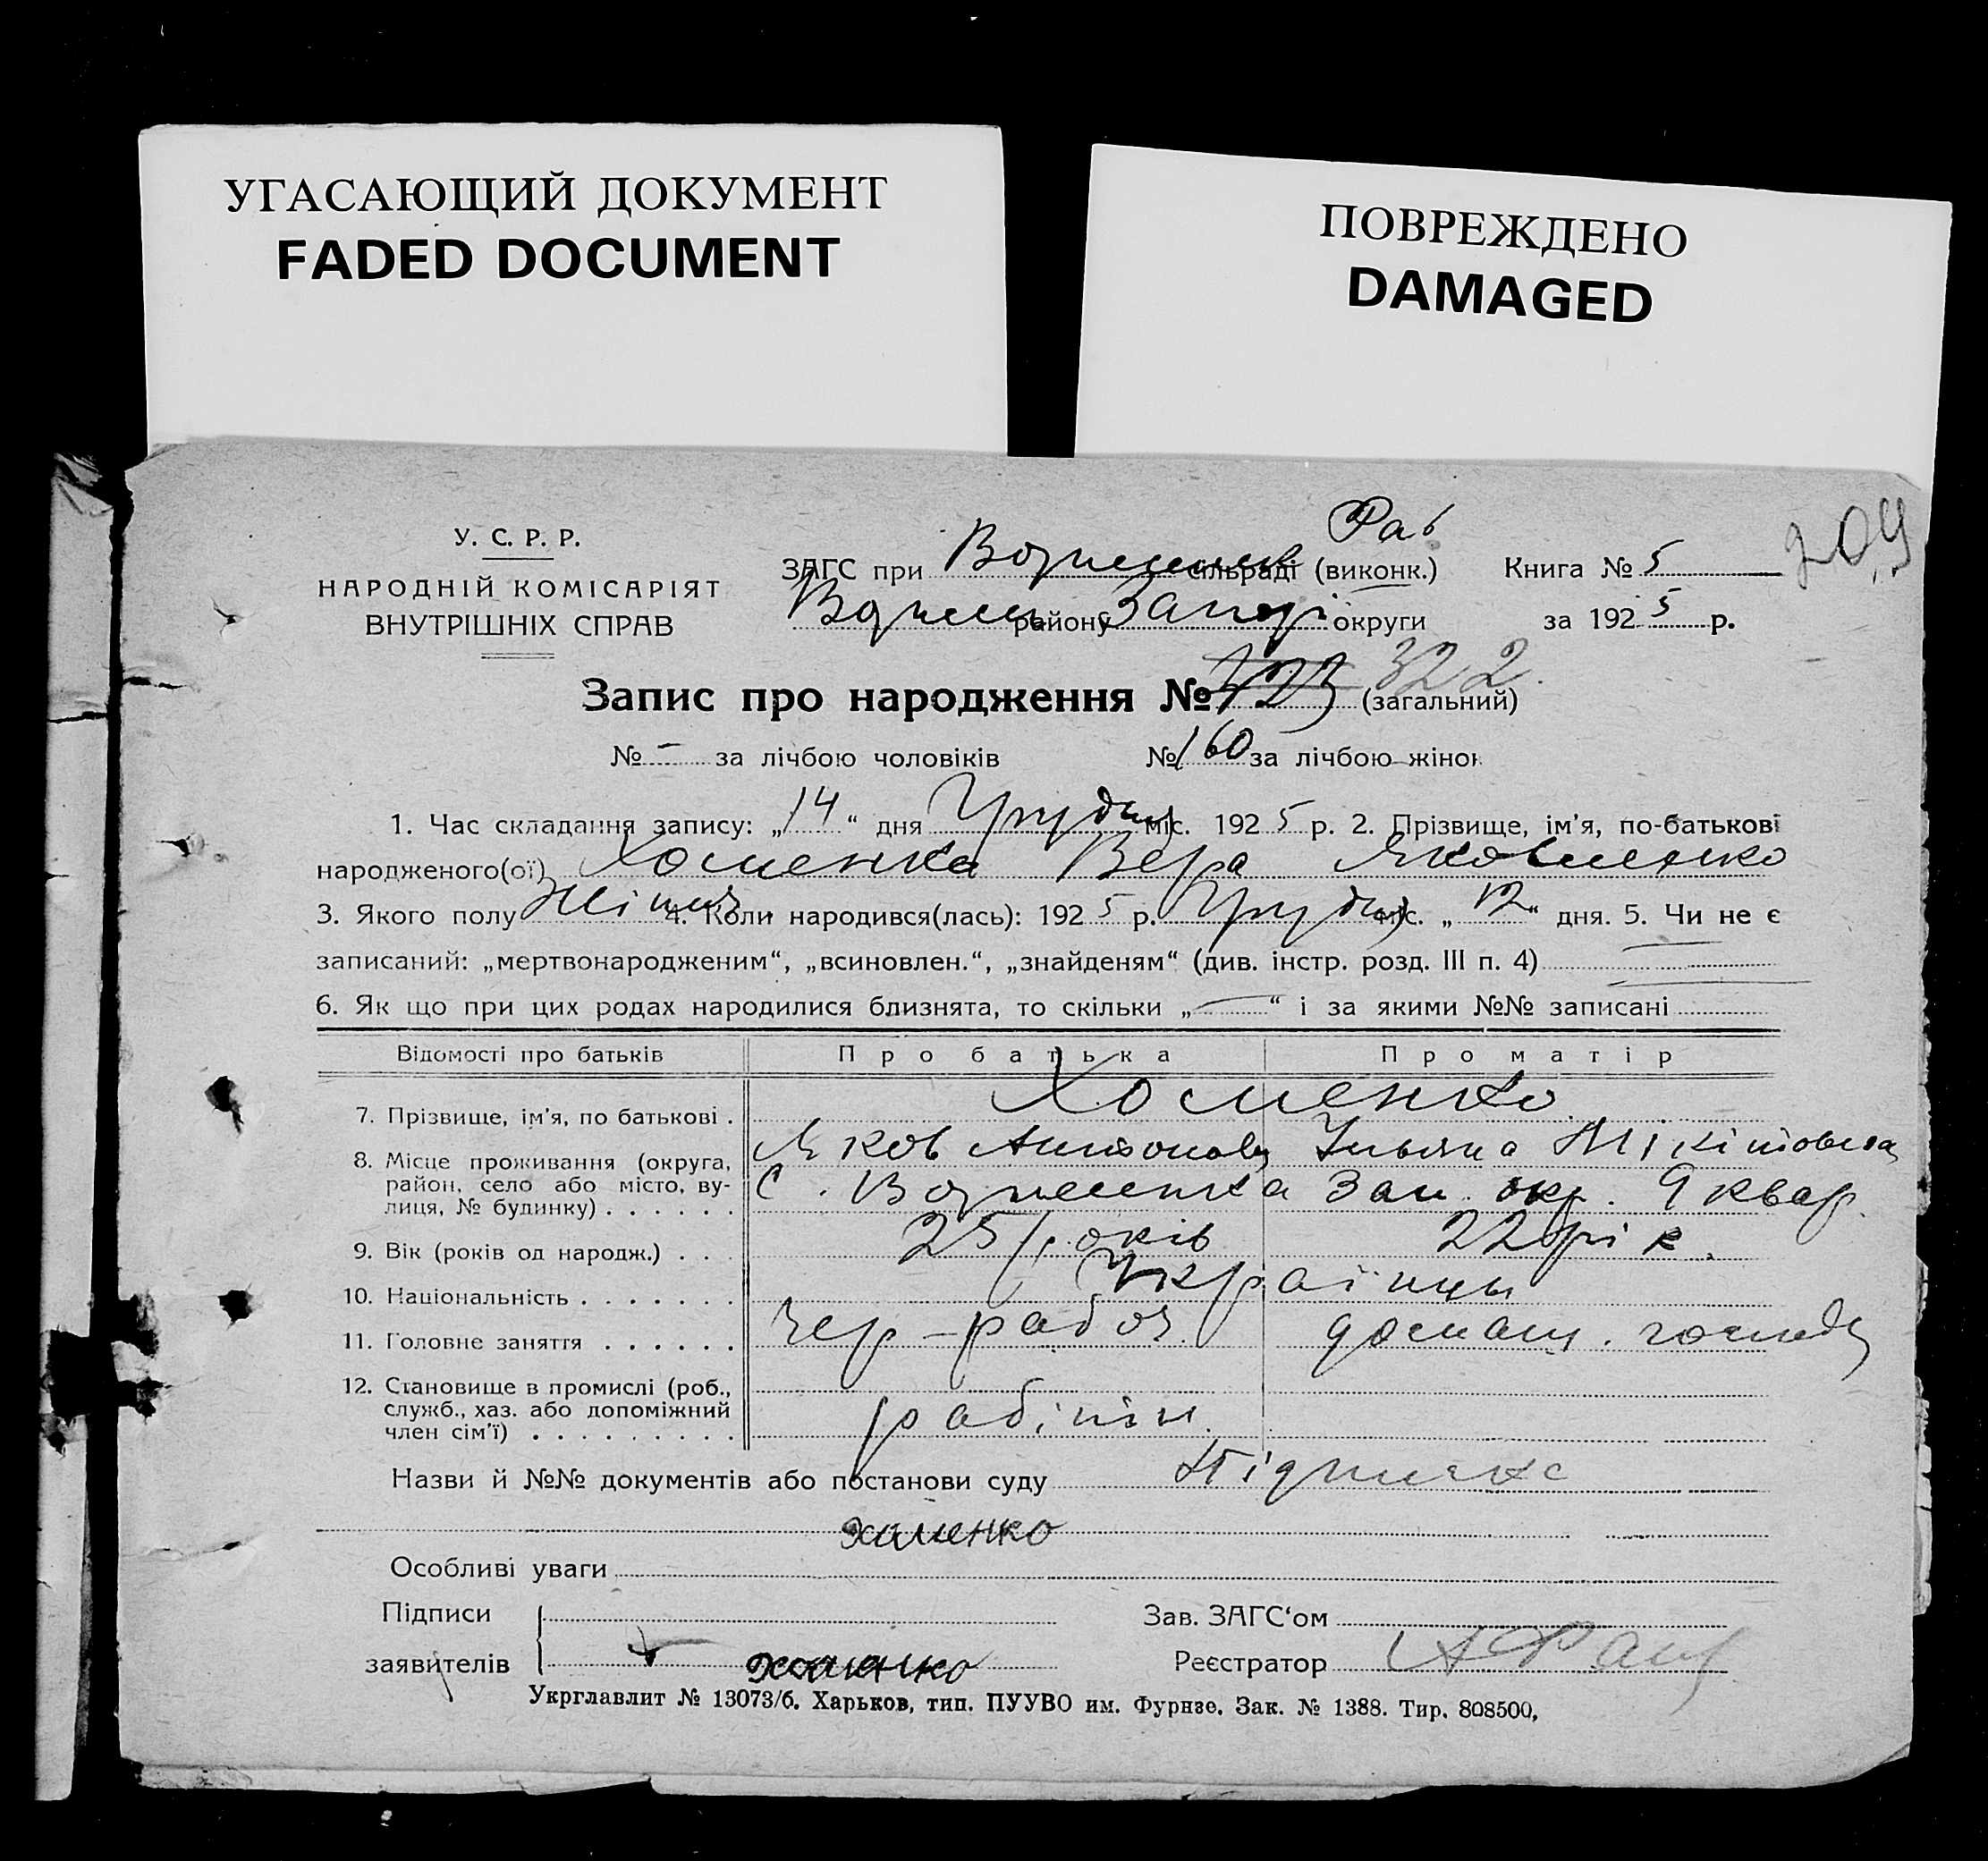 УГАСАЮЩИЙ ДОКУМЕНТ
FADED DOCUMENT
ПОВРЕЖДЕНО
DAMAGED
209
У. С. Р. Р.
НАРОДНІЙ КОМІСАРІЯТ
ВНУТРІШНІХ СПРАВ
Рай
ЗАГС при Вознесенск сільраді (виконк.) Книга № 5
району Запорі округи за 1925 р.
Запис про народження № 323 322 (загальний)
№ – за лічбою чоловіків № 160 за лічбою жінок
1. Час складання запису: „14“ дня Грудня міс. 1925 р. 2. Прізвище, ім'я, по-батькові
народженого(ої) Хоменко Вера Яковленко
3. Якого полу 4. Коли народився(лась): 1925 р. Грудня міс. „12“ дня. 5. Чи не є
записаний: „мертвонародженим“, „всиновлен.“, „знайденям“ (див. інстр. розд. III п. 4)
6. Як що при цих родах народилися близнята, то скільки „—“ і за якими №№ записані
Відомості про батьків Про батька Про матір
7. Прізвище, ім'я, по батькові . Хоменко
Яков Антонов Ульяна Мікітовна
8. Місце проживання (округа, район, село або місто, вулиця, № будинку) . . . . . . С. Вознесенка Зап. окр. 9 квар.
9. Вік (років од народж.) . . . 25 років 22 рік.
10. Національність . . . . . . . Українцы
11. Головне заняття . . . . . . Чер-рабоч. домаш. господ
12. Становище в промислі (роб., служб., хаз. або допоміжний член сім'ї) . . . . . . . . . робітн.
Назви й №№ документів або постанови суду Підписка
Хоменко
Особливі уваги
Підписи Зав. ЗАГС'ом
заявителів Хоменко Реєстратор
Укрглавлит № 13073/б. Харьков, тип. ПУУВО им. Фурнзе. Зак. № 1388. Тир. 808500,